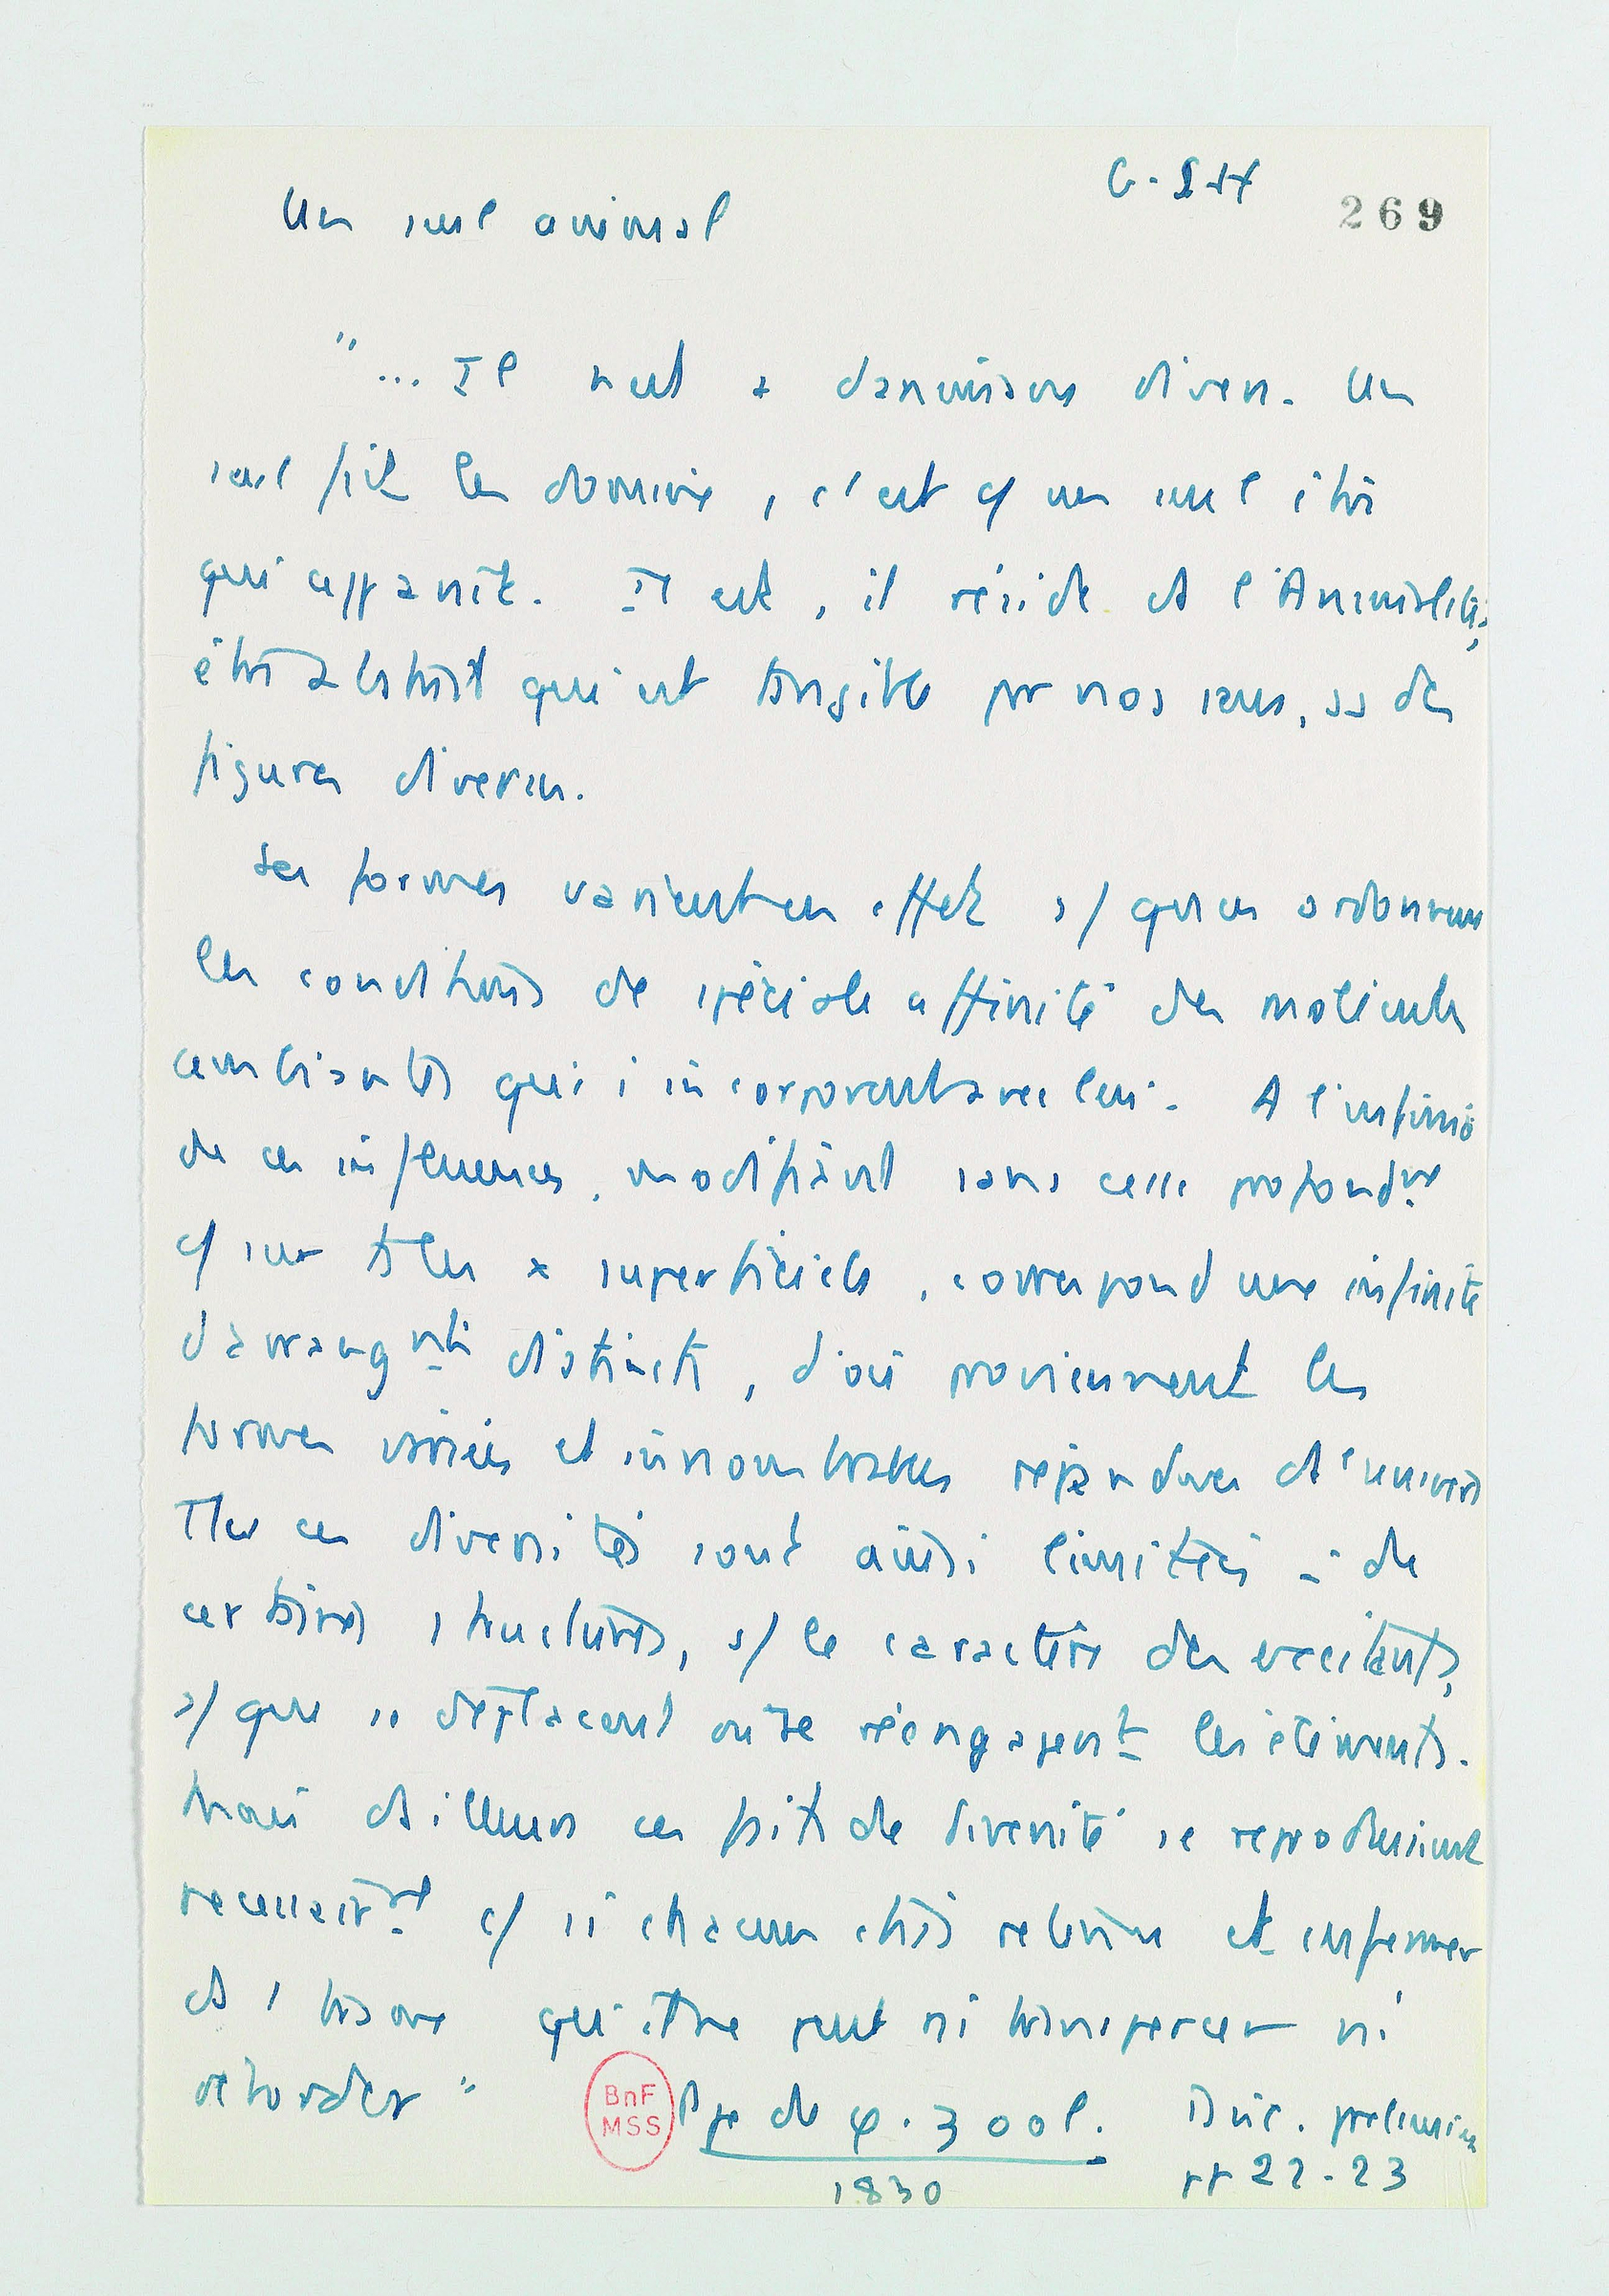 G-StH
269
Un seul animal
"... Il n'est + d'animaux divers. Un
seul fait les domine, c'est c/ un seul être
qui apparaît. Il est, il réside ds l'Animalité;
être abstrait qui est tangible par nos sens, ss des
figures diverses.
Ses formes varient en effet s/ qu'en ordonnent
les conditions de spéciale affinité des molécules
ambiantes qui s'incorporent avec lui. A l'infinité
de ces influences, modifiant sans cesse profondnt
c/ sur ts les x superficiels, correspond une infinité
d'arrangnts distincts, d'où proviennent les
formes variées et innombrables répandues ds l'univers
Ttes ces diversités sont ainsi limitées à de
certaines structures, s/ le caractère des excitants,
s/ que se déplacent ou se réengagent les éléments.
Mais d'ailleurs ces faits de diversité se reproduisent
nécessairnt c/ si chacun était retenu et enfermer
ds l
qu'il ne peut ni transpercer ni
déborder"
BnF
MSS
Ppe de φ. zool. Disc. prélimin
1830
pp 22-23